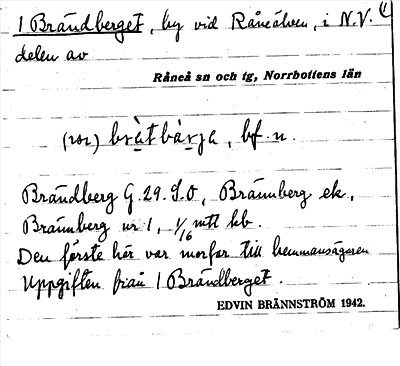 1 Brändberget, by vid Råneälven, i N.V.
delen av
Råneå sn och tg, Norrbottens län
brä̀tbär̀ja, bf. n.
Brändberg G. 29. S.O, Brännberg ek,
Brännberg nr 1, 1/16 mtl kb.
Den förste här var morfar till hemmansägaren
Uppgiften från 1 Brändberget.
EDVIN BRÄNNSTRÖM 1942.